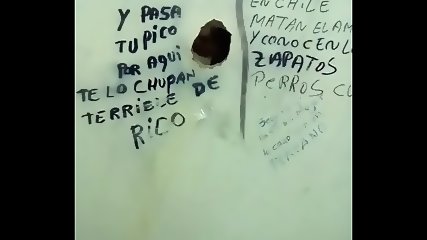 Y PASA
TU PICO
POR AQUI
TE LO CHUPAN DE
TERRIBLE
RICO
EN CHILE
MATAN EL AM
Y CONOCEN L
ZAPATOS
PERROS CU